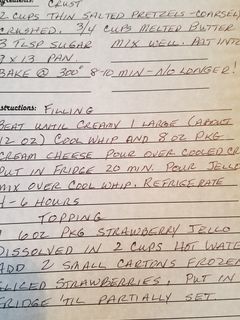 Ingredients: CRUST
2 CUPS THIN SALTED PRETZELS - COARSELY
CRUSHED. 3/4 CUPS MELTED BUTTER
3 TLSP SUGAR MIX WELL. PAT INTO
9 X 13 PAN
BAKE @ 300° 8-10 MIN - NO LONGER!
Instructions: FILLING
BEAT UNTIL CREAMY 1 LARGE (ABOUT
12 OZ) COOL WHIP AND 8 OZ PKG
CREAM CHEESE POUR OVER COOLED CR
PUT IN FRIDGE 20 MIN. POUR JELLO
MIX OVER COOL WHIP. REFRIGERATE
4-6 HOURS
TOPPING
1 6 OZ PKG STRAWBERRY JELLO
DISSOLVED IN 2 CUPS HOT WATE
ADD 2 SMALL CARTONS FROZEN
SLICED STRAWBERRIES. PUT IN
FRIDGE 'TIL PARTIALLY SET.